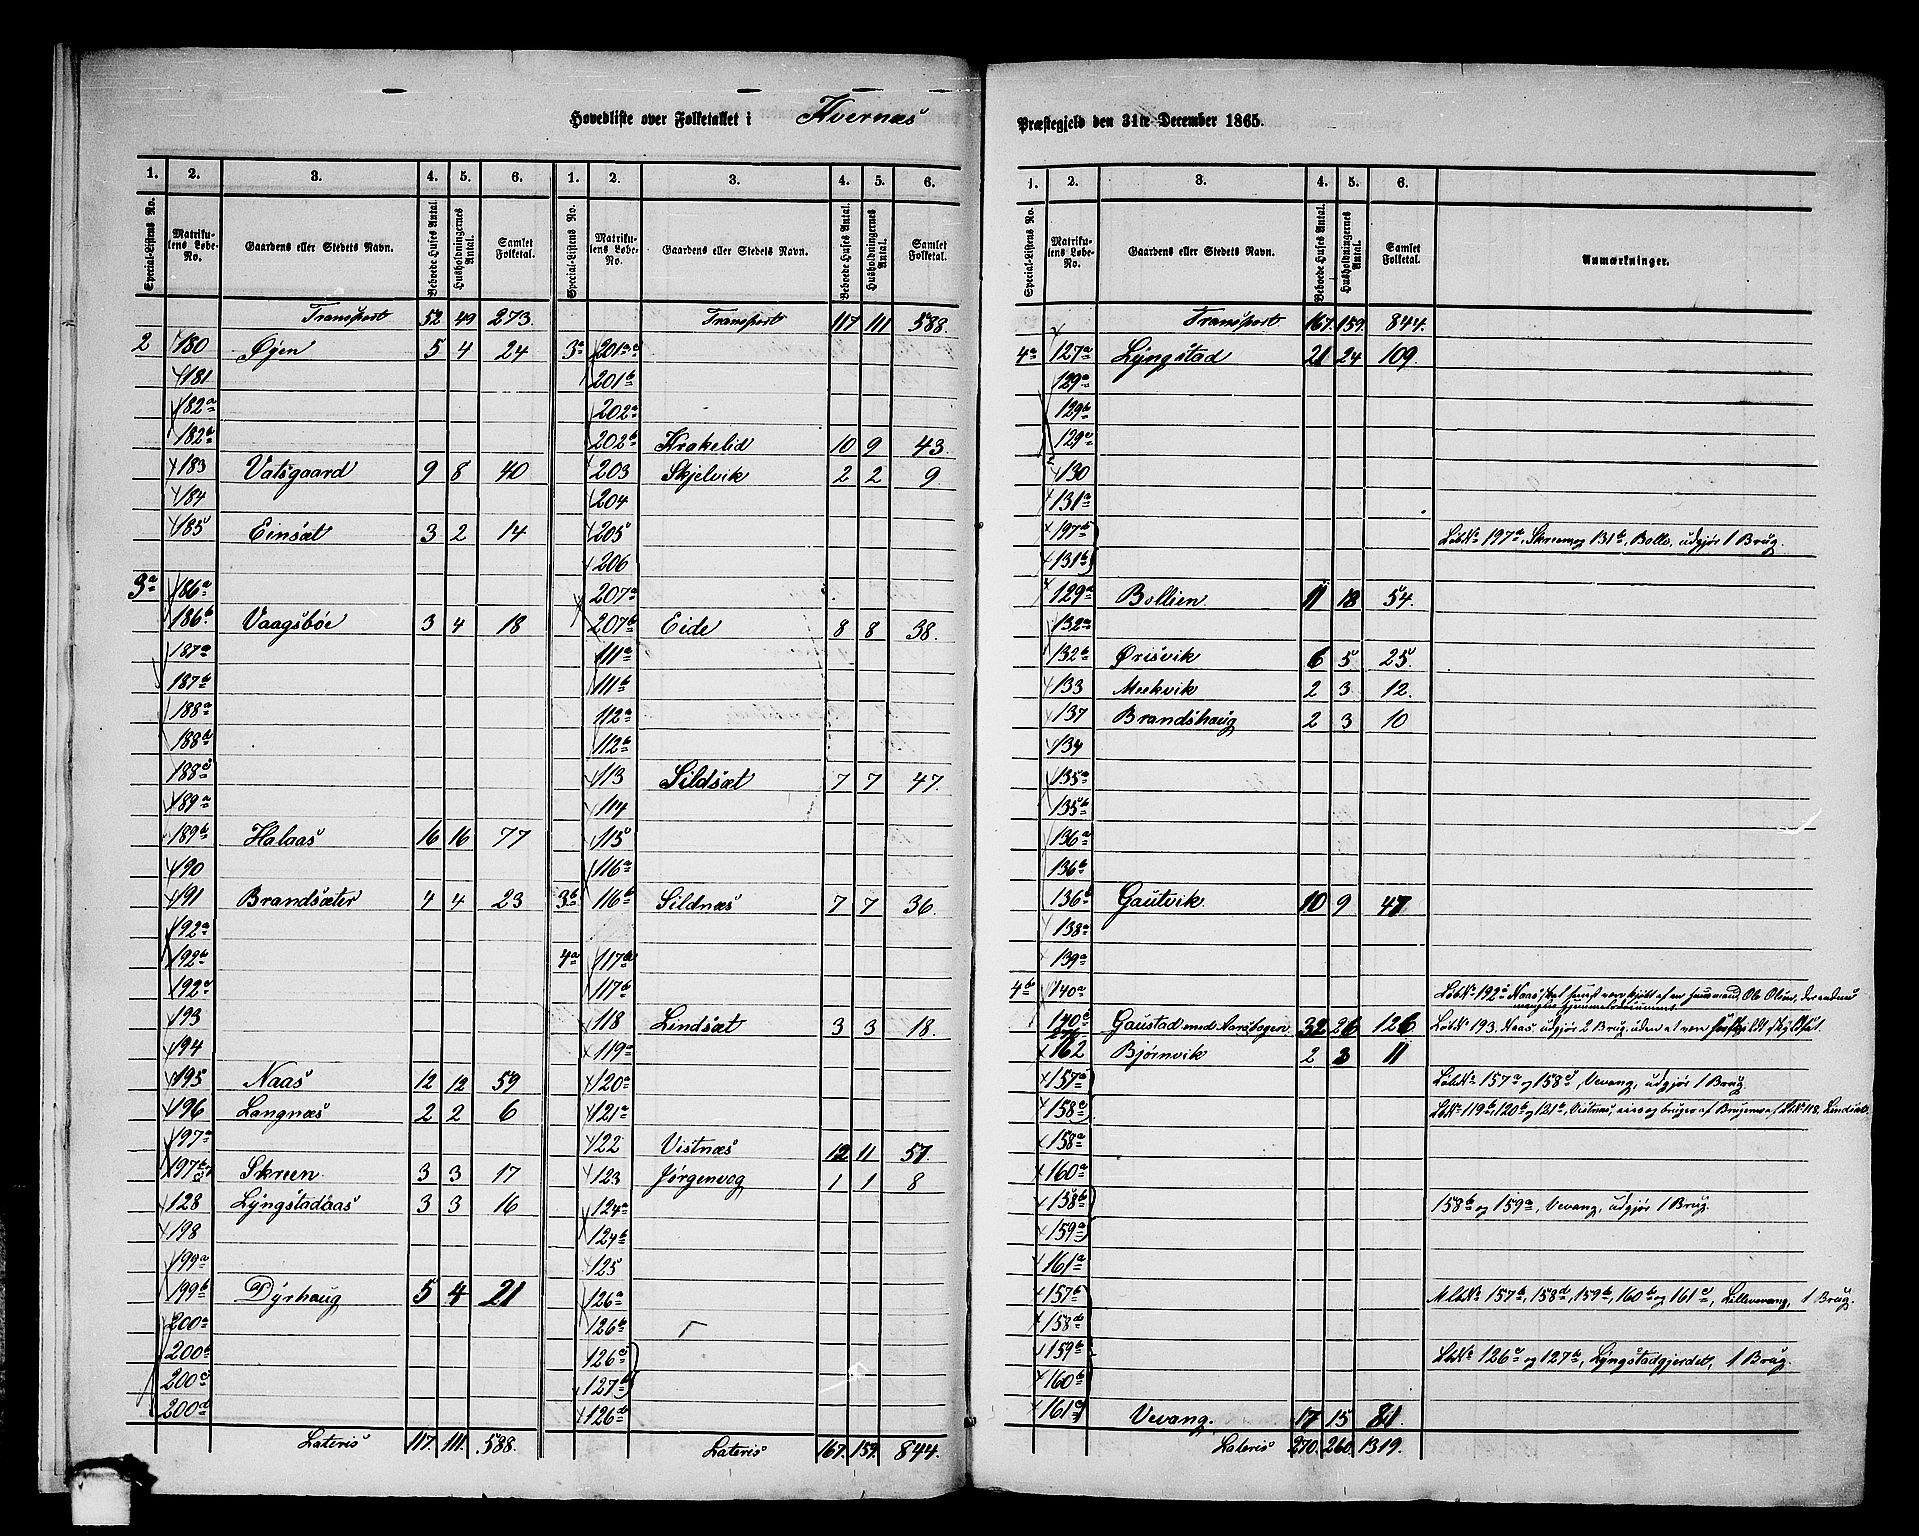 Hovedliste over Folketallet i Kvernæs Præstegjeld den 31te December 1865.
1. 2. 3. 4. 5. 6.
Special-Listens No. Matrikulens Løbe-No. Gaardens eller Stedets Navn. Beboede Huses Antal. Husholdningernes Antal. Samlet Folketal.
Transport 52 49 273.
2 180 Øyen 5 4 24
181
182a
182b
183 Vatsgaard 9 8 40
184
185 Einsæt 3 2 14
3a 186a
186b Vaagsbøe 3 4 18
187a
187b
188a
188b
188c
189a
189b Halaas 16 16 77
190
191 Brandsæter 4 4 23
192a
192b
192c
193
194
195 Naas 12 12 59
196 Langnæs 2 2 6
197a
197b Skreen 3 3 17
128 Lyngstadaas 3 3 16
198
199a
199b Dyrhaug 5 4 21
200a
200b
200c
200d
Lateris 117. 111. 588.
1. 2. 3. 4. 5. 6.
Special-Listens No. Matrikulens Løbe-No. Gaardens eller Stedets Navn. Beboede Huses Antal. Husholdningernes Antal. Samlet Folketal.
Transport 117 111 588.
3a 201a
201b
202a
202b Krakelid 10 9 43.
203 Skjelvik 2 2 9.
204
205
206
207a
207b Eide 8 8 38.
111a
111b
112a
112b
113 Sildsæt 7 7 47.
114
115
116a
3b 116b Sildnæs 7 7 36.
4a 117a
117b
118 Lindsæt 3 3 18.
119a
120a
121a
122 Vistnæs 12 11 57.
123 Jørgenvog 1 1 8
124a
124b
125
126a
126b
126c
127b
126d
Lateris 167. 159. 844.
1. 2. 3. 4. 5. 6.
Special-Listens No. Matrikulens Løbe-No. Gaardens eller Stedets Navn. Beboede Huses Antal. Husholdningernes Antal. Samlet Folketal. Anmærkninger.
Transport 167. 159. 844.
4a 127a Lyngstad 21 24 109.
129a
129b
129c
130
131a
197d LøbNo 197d, Skreen og 131b, Bolle, udgjør 1 Brug.
131b
129a Bollien. 11 18 54.
132a
132b Ørisvik 6 5 25.
133 Meekvik 2 3 12.
137 Brandshaug 2 3 10
134
135a
135b
136a
136b
136b Gautvik 10 9 47.
138a
139a
4b 140a LøbNo 192c Naas
140c Gaustad med Aarsbogen 32 26 126 LøbNo 193. Naas. udgjør 2 Brug, uden at være
162 Bjørnvik 2 3 11
157a LøbNo 157a og 158c, Vevang, udgjør 1 Brug.
158c LbNo 119b, 120b og 121b, Vistnæs, eies og bruges af Brugeren af No 118. Lindsæt.
158a
160a
158b 158b og 159a, Vevang, udgjør 1 Brug.
159a
161a
157b MlbNo 157b, 158d, 159b, 160b og 161c, Lillevevang, 1 Brug.
158d
159b LbNo 126c og 127b, Lyngstadgjerdet, 1 Brug.
160b
161c Vevang. 17 15 81.
Lateris 270. 260. 1319.